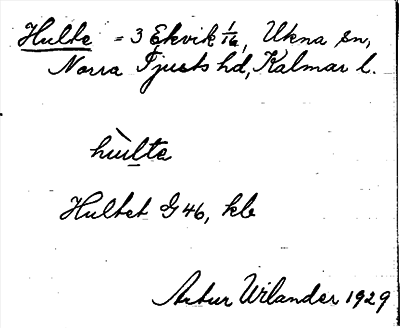 Hulte = 3 Ekvik 1/16, Ukna sn,
Norra Tjusts hd, Kalmar l.
hùlta
Hultet G 46, kb
Artur Wilander 1929